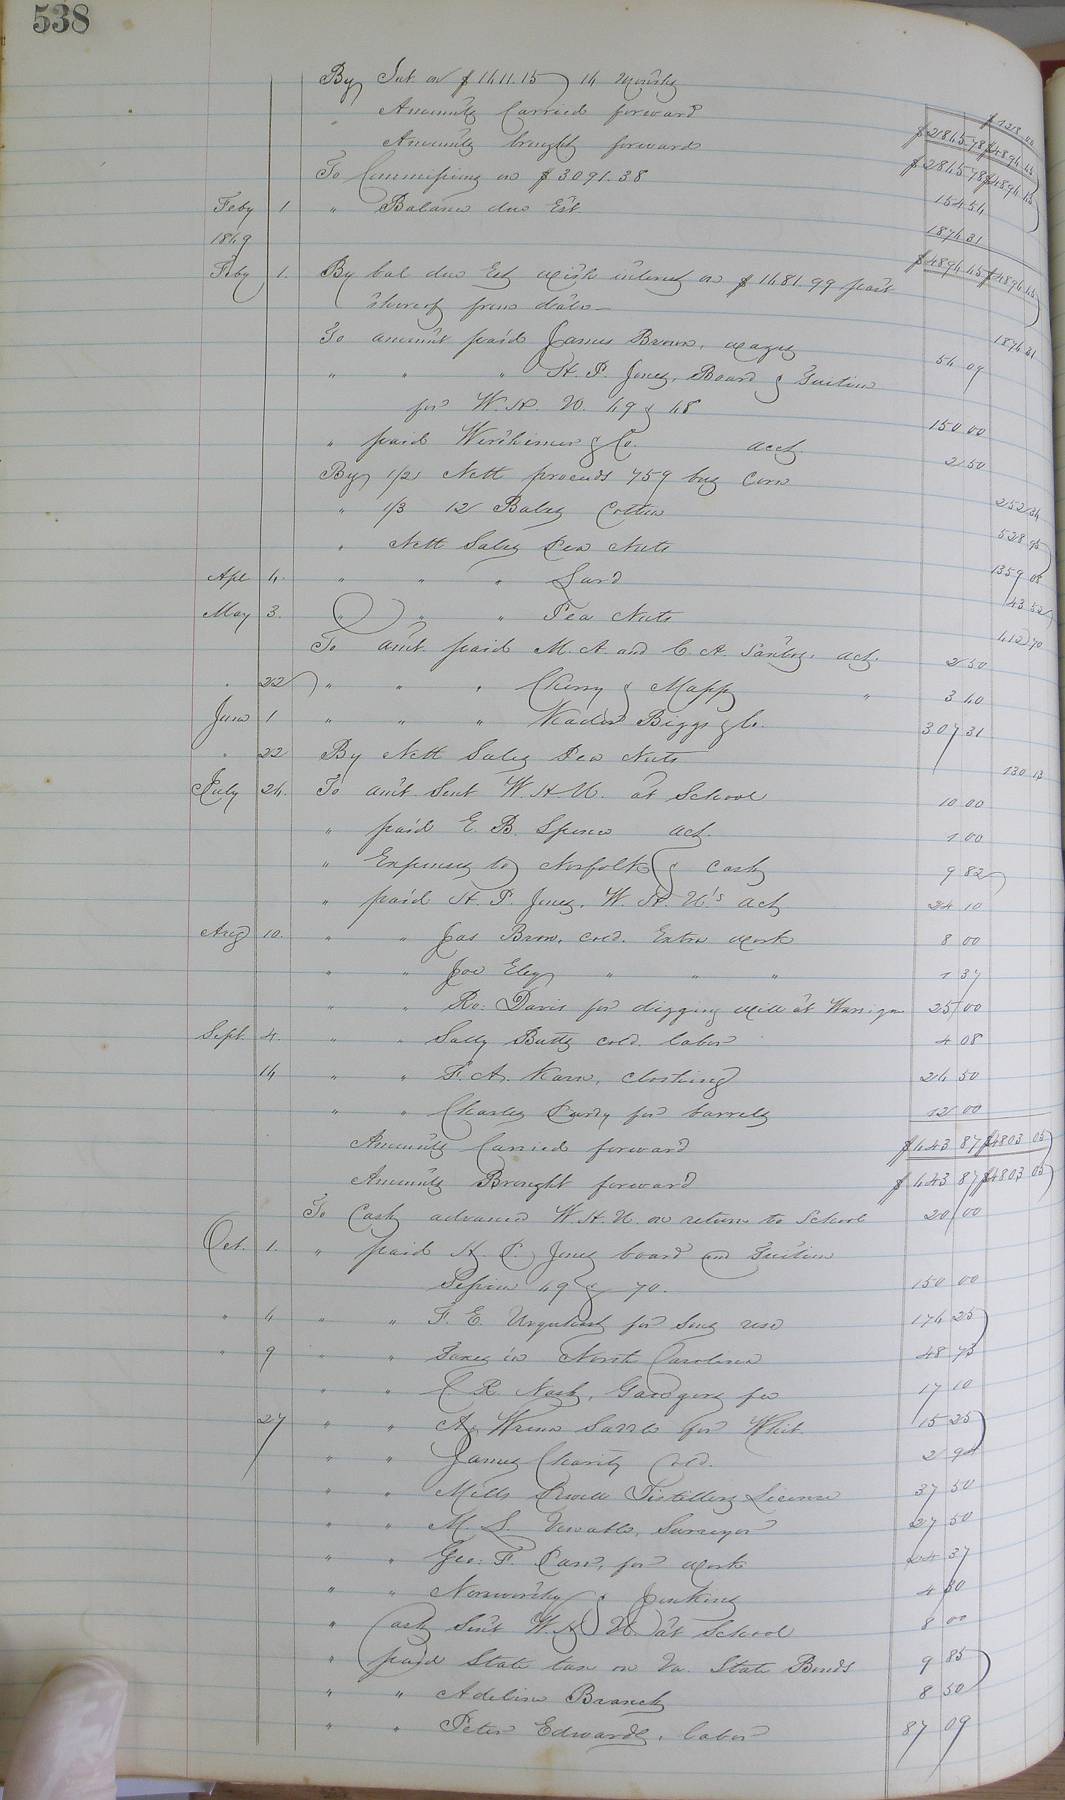 538
By Int on $1411.15 14 Months $128.00
Amounts Carried forward $2845.78 $4894.45
Amounts brought forward $2845.78 $4894.45
To Commissions on $3091.38 154 54
Feby 1 " Balance due Est. 1894 31
1869 $4894.45 $4894.45
Feby 1. By bal due Est with interest on $1481.99 part
thereof from date — 1894 31
To amount paid James Brown, wages 54 09
" " " H. P. Jones, Board & Tuition
for W. H. U. 69 & 68 150 00
" paid Wertheimer & Co. acct. 2 50
By 1/2 Nett proceeds 759 bus Corn 252 34
" 1/3 12 Bales Cotton 528 95
" Nett Sales Pea Nuts 1359 08
Apl 4. " " " Lard 43 52
May 3. " " " Pea Nuts 412 70
To amt. paid M. A. and C. A. Santos, act. 2 50
" 22 " " " Cherry & Mapp " 3 40
June 1 " " " Kader Biggs & Co. 307 31
" 22 By Nett Sales Pea Nuts 130 13
July 24. To amt Sent W. H. U. at School 10 00
" paid E. B. Spence act. 1 00
" Expenses to Norfolk & Cash 9 82
" paid H. P. Jones, W. H. U's act 24 10
Aug 10. " " Jas Brown, cold. Extra work 8 00
" " Joe Eley " " " 1 37
" " Ro. Davis for digging well at 25 00
Sept. 4. " " Sally Butts cold. labor 4 08
14 " " F. A. Karn, clothing 24 50
" " Charles Purdy for barrels 12 00
Amounts Carried forward $643 87 $4803 05
Amounts Brought forward $643 87 $4803 05
To Cash advanced W. H. U. on return to School 20 00
Oct. 1. " paid H. P. Jones board and Tuition
Session 69 & 70. 150 00
" 4 " " F. E. Urquhart for Sms use 174 25
" 9 " " Taxes in North Carolina 48 73
" " C R Nash, Gaugers fee 17 10
27 " " A. Wrenn Saddle for Whit. 15 25
" " James Charity Cold. 2 94
" " Mills Distillery License 37 50
" " M. S. Venable, Surveyor 27 50
" " Geo: F. Parr, for work 24 37
" " Norsworthy & Jenkins 4 30
" Cash Sent W. H. U. at School 8 00
" paid State tax on Va. State Bonds 9 85
" " Adeline Branch 8 50
" " Peter Edwards, labor 87 09